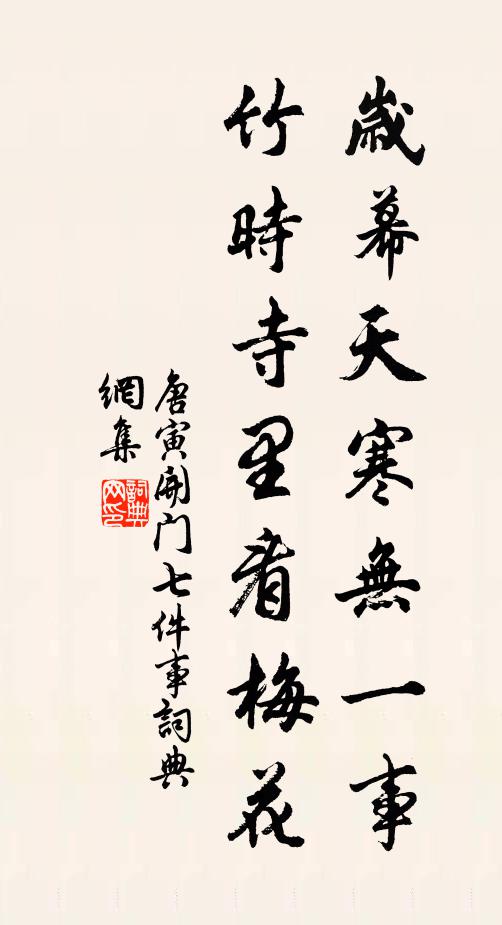 歲暮天寒無一事
竹時寺里看梅花
唐寅開門七件事詞典
網集
詞典
网印